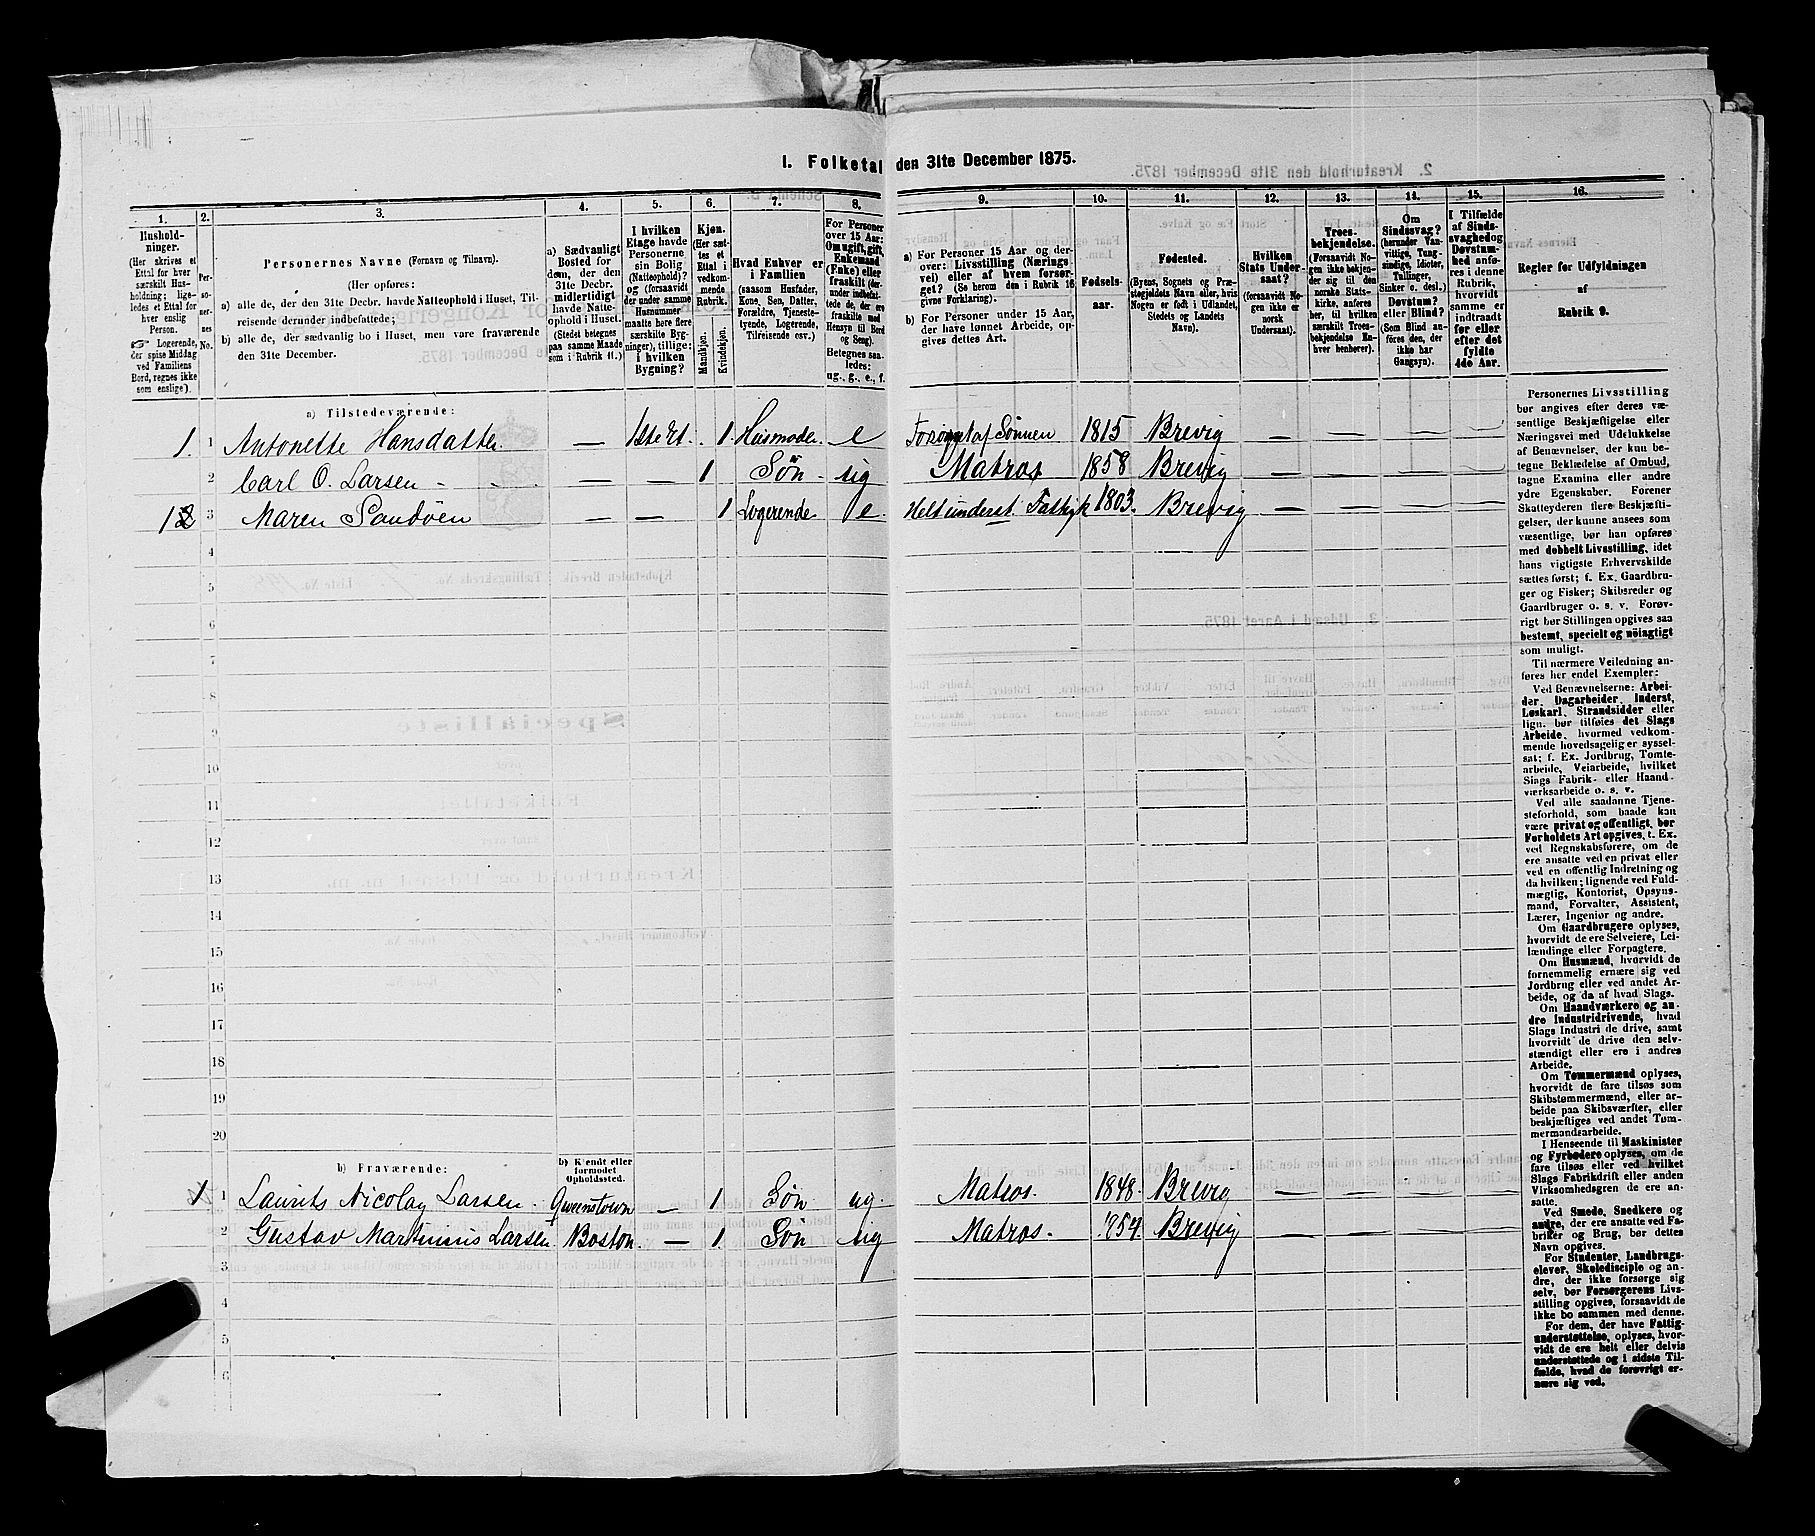 1. Folketal den 31te December 1875.
1.
Hushold-
ninger.
(Her skrives et
Ettal for hver
særskilt Hus-
holdning; lige-
ledes et Ettal for
hver enslig
Person.
☞ Logerende,
der spise Middag
ved Familiens
Bord, regnes ikke
som enslige).
2.
Per-
so-
ner-
nes
No.
3.
Personernes Navne (Fornavn og Tilnavn).
(Her opføres:
a) alle de, der den 31te Decbr. havde Natteophold i Huset, Til-
reisende derunder indbefattede;
b) alle de, der sædvanlig bo i Huset, men vore fraværende
den 31te December.
4.
a) Sædvanligt
Bosted for
dem, der den
31te Decbr.
midlertidigt
havde Natte-
ophold i Huset.
(Stedet betegnes
paa samme Maade
som i Rubrik 11.)
5.
I hvilken
Etage havde
Personerne
sin Bolig
(Natteophold)?
og (forsaavidt
der under samme
Husnummer
maatte høre flere
særskilte Byg-
ninger), tillige:
i hvilken
Bygning?
6.
Kjøn.
(Her sæt-
tes et
Ettal i
vedkom-
mende
Rubrik.
Mandkjøn.
Kvindekjøn.
7.
Hvad Enhver er
i Familien
(saasom Husfader,
Kone, Søn, Datter,
Forældre, Tjeneste-
tyende, Logerende,
Tilreisende osv.)
8.
For Personer
over 15 Aar:
Om ugift, gift,
Enkemand
(Enke) eller
fraskilt (der-
under indbefat-
tede de, der ere
fraskilte med
Hensyn til Bord
og Seng).
Betegnes saa-
ledes:
ug., g., e., f.
9.
a) For Personer 15 Aar og der-
over: Livsstilling (Nærings-
vei) eller af hvem forsør-
get? (Se herom den i Rubrik 16
givne Forklaring).
b) For Personer under 15 Aar,
der have lønnet Arbeide, op-
gives dettes Art.
10.
Fødsels-
aar.
11.
Fødested.
(Byens, Sognets og Præ-
stegjeldets Navn eller, hvis
Nogen er født i Udlandet,
Stedets og Landets
Navn).
12.
Hvilken
Stats Under-
saat?
(forsaavidt No-
gen ikke er
norsk
Undersaat).
13.
Troes-
bekjendelse.
(Forsaavidt No-
gen ikke bekjen-
der sig til den
norske Stats-
kirke, anføres
her, til hvilken
særskilt Troes-
bekjendelse En-
hver henhører).
14.
Om
Sindssvag?
(herunder Van-
vittige, Tung-
sindige, Idioter,
Tullinger,
Sinker o. desl.)
Døvstum?
eller Blind?
(Som Blind an-
føres den, der
ikke har
Gangsyn).
15.
I Tilfælde
af Sinds-
svaghed og
Døvstum-
hed anfø-
res i denne
Rubrik,
hvorvidt
samme er
indtraadt
før eller
efter det
fyldte
4de Aar.
16.
Regler for Udfyldningen
af
Rubrik 9.
a) Tilstedeværende:
1. 1 Antonette Hansdatter — 1ste Et. 1 Husmoder e Forsørget af Sønnen 1815 Brevig — — — —
2 Carl O. Larsen — — 1 Søn ug Matros 1858 Brevig — — — —
1 2 3 Maren Sandøen — — 1 Logerende e. Helt underst. Fattigk 1803. Brevig — — — —
4
5
6
7
8
9
10
11
12
13
14
15
16
17
18
19
20
b) Fraværende:
b) Kjendt eller
formodet
Opholdssted.
1 1 Laurits Nicolay Larsen Queenstown — 1 Søn ug Matros. 1848. Brevig — — — —
2 Gustav Martinius Larsen Boston — 1 Søn ug Matros. 1854. Brevig — — — —
3
4
5
6
Personernes Livsstilling
bør angives efter deres væ-
sentlige Beskjæftigelse eller
Næringsvei med Udelukkelse
af Benævnelser, der kun be-
tegne Beklædelse af Ombud,
tagne Examina eller andre
ydre Egenskaber. Forener
Skatteyderen flere Beskjæfti-
gelser, der kunne ansees som
væsentlige, bør han opføres
med dobbelt Livsstilling, idet
hans vigtigste Erhvervskilde
sættes først; f. Ex. Gaardbru-
ger og Fisker; Skibsreder og
Gaardbruger o. s. v. Forøv-
rigt bør Stillingen opgives saa
bestemt, specielt og nöiagtigt
som muligt.
Til nærmere Veiledning an-
føres her endel Exempler:
Ved Benævnelserne: Arbei-
der, Dagarbeider, Inderst,
Løskarl, Strandsidder eller
lign. bør tilføies det Slags
Arbeide, hvormed vedkom-
mende hovedsagelig er syssel-
sat; f. Ex. Jordbrug, Tomte-
arbeide, Veiarbeide, hvilket
Slags Fabrik- eller Haand-
værksarbeide o. s. v.
Ved alle saadanne Tjene-
steforhold, som baade kan
være privat og offentligt, bør
Forholdets Art opgives, t. Ex.
ved Regnskabsførere, om de
ere ansatte ved en privat eller
ved en offentlig Indretning og
da hvilken; lignende ved Fuld-
mægtig, Kontorist, Opsyns-
mand, Forvalter, Assistent,
Lærer, Ingeniør og andre.
Om Gaardbrugere oplyses,
hvorvidt de ere Selveiere, Lei-
lændinge eller Forpagtere.
Om Husmænd, hvorvidt de
fornemmelig ernære sig ved
Jordbrug eller ved andet Ar-
beide, og da af hvad Slags.
Om Haandværkere og an-
dre Industridrivende, hvad
Slags Industri de drive, samt
hvorvidt de drive den selv-
stændigt eller ere i andres
Arbeide.
Om Tømmermænd oplyses,
hvorvidt de fare tilsøs som
Skibstømmermænd, eller ar-
beide paa Skibsværfter, eller
beskjæftiges ved andet Tøm-
mermandsarbeide.
I Henseende til Maskinister
og Fyrbødere oplyses, om de
fare tilsøs eller ved hvilket
Slags Fabrikdrift eller anden
Virksomhedsgren de ere an-
satte.
Ved Smede, Snedkere og
andre, der ere ansatte ved Fa-
briker og Brug, bør dettes
Navn opgives.
For Studenter, Landbrugs-
elever, Skoledisciple og an-
dre, der ikke forsørge sig
selv, bør Forsørgerens Livs-
stilling opgives, forsaavidt de
ikke bo sammen med denne.
For dem, der have Fattig-
understøttelse, oplyses, hvor-
vidt de ere helt eller delvis
understøttede og i sidste Til-
fælde, hvad de forøvrigt er-
nære sig ved.